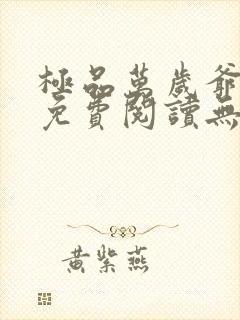 極品萬歲爺
免費閱讀無
黃紫燕